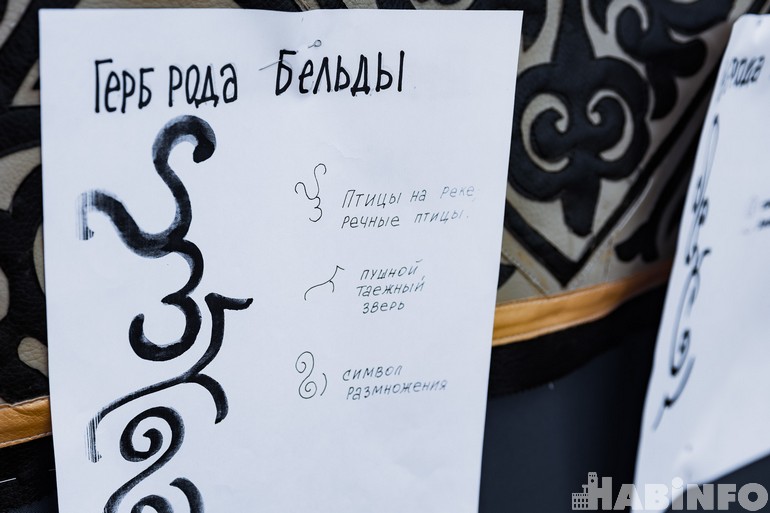 Герб рода Бельды
Птицы на реке,
речные птицы.
пушной,
таежный
зверь
символ
размножения
рода
HABINFO